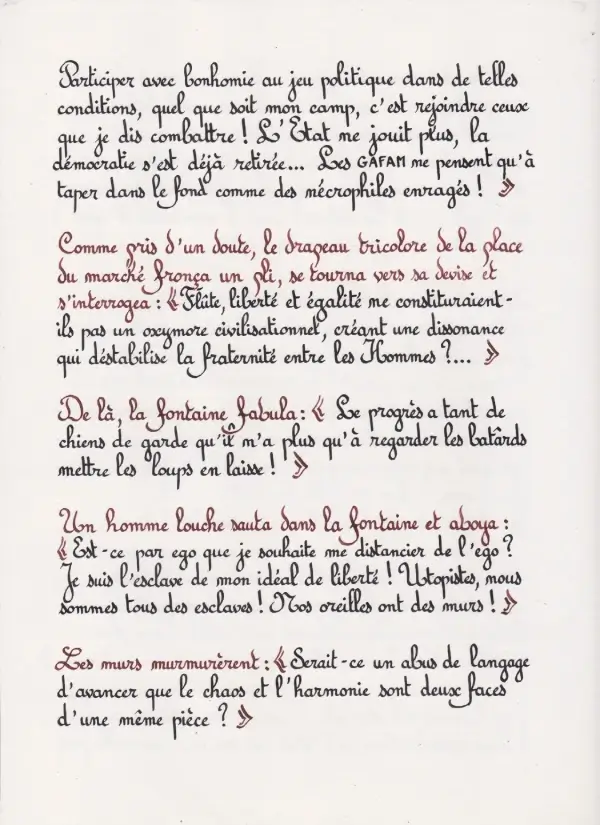 Participer avec bonhomie au jeu politique dans de telles
conditions, quel que soit mon camp, c'est rejoindre ceux
que je dis combattre ! L'État ne jouit plus, la
démocratie s'est déjà retirée... Les GAFAM ne pensent qu'à
taper dans le fond comme des nécrophiles enragés ! »
Comme pris d'un doute, le drapeau tricolore de la place
du marché fronça un pli, se tourna vers sa devise et
s'interrogea : « Flûte, liberté et égalité ne constituraient-
ils pas un oxymore civilisationnel, créant une dissonance
qui déstabilise la fraternité entre les Hommes ?... »
De là, la fontaine fabula : « Le progrès a tant de
chiens de garde qu'il n'a plus qu'à regarder les batârds
mettre les loups en laisse ! »
Un homme louche sauta dans la fontaine et aboya :
« Est-ce par ego que je souhaite me distancier de l'ego ?
Je suis l'esclave de mon idéal de liberté ! Utopistes, nous
sommes tous des esclaves ! Nos oreilles ont des murs ! »
Les murs murmurèrent : « Serait-ce un abus de langage
d'avancer que le chaos et l'harmonie sont deux faces
d'une même pièce ? »